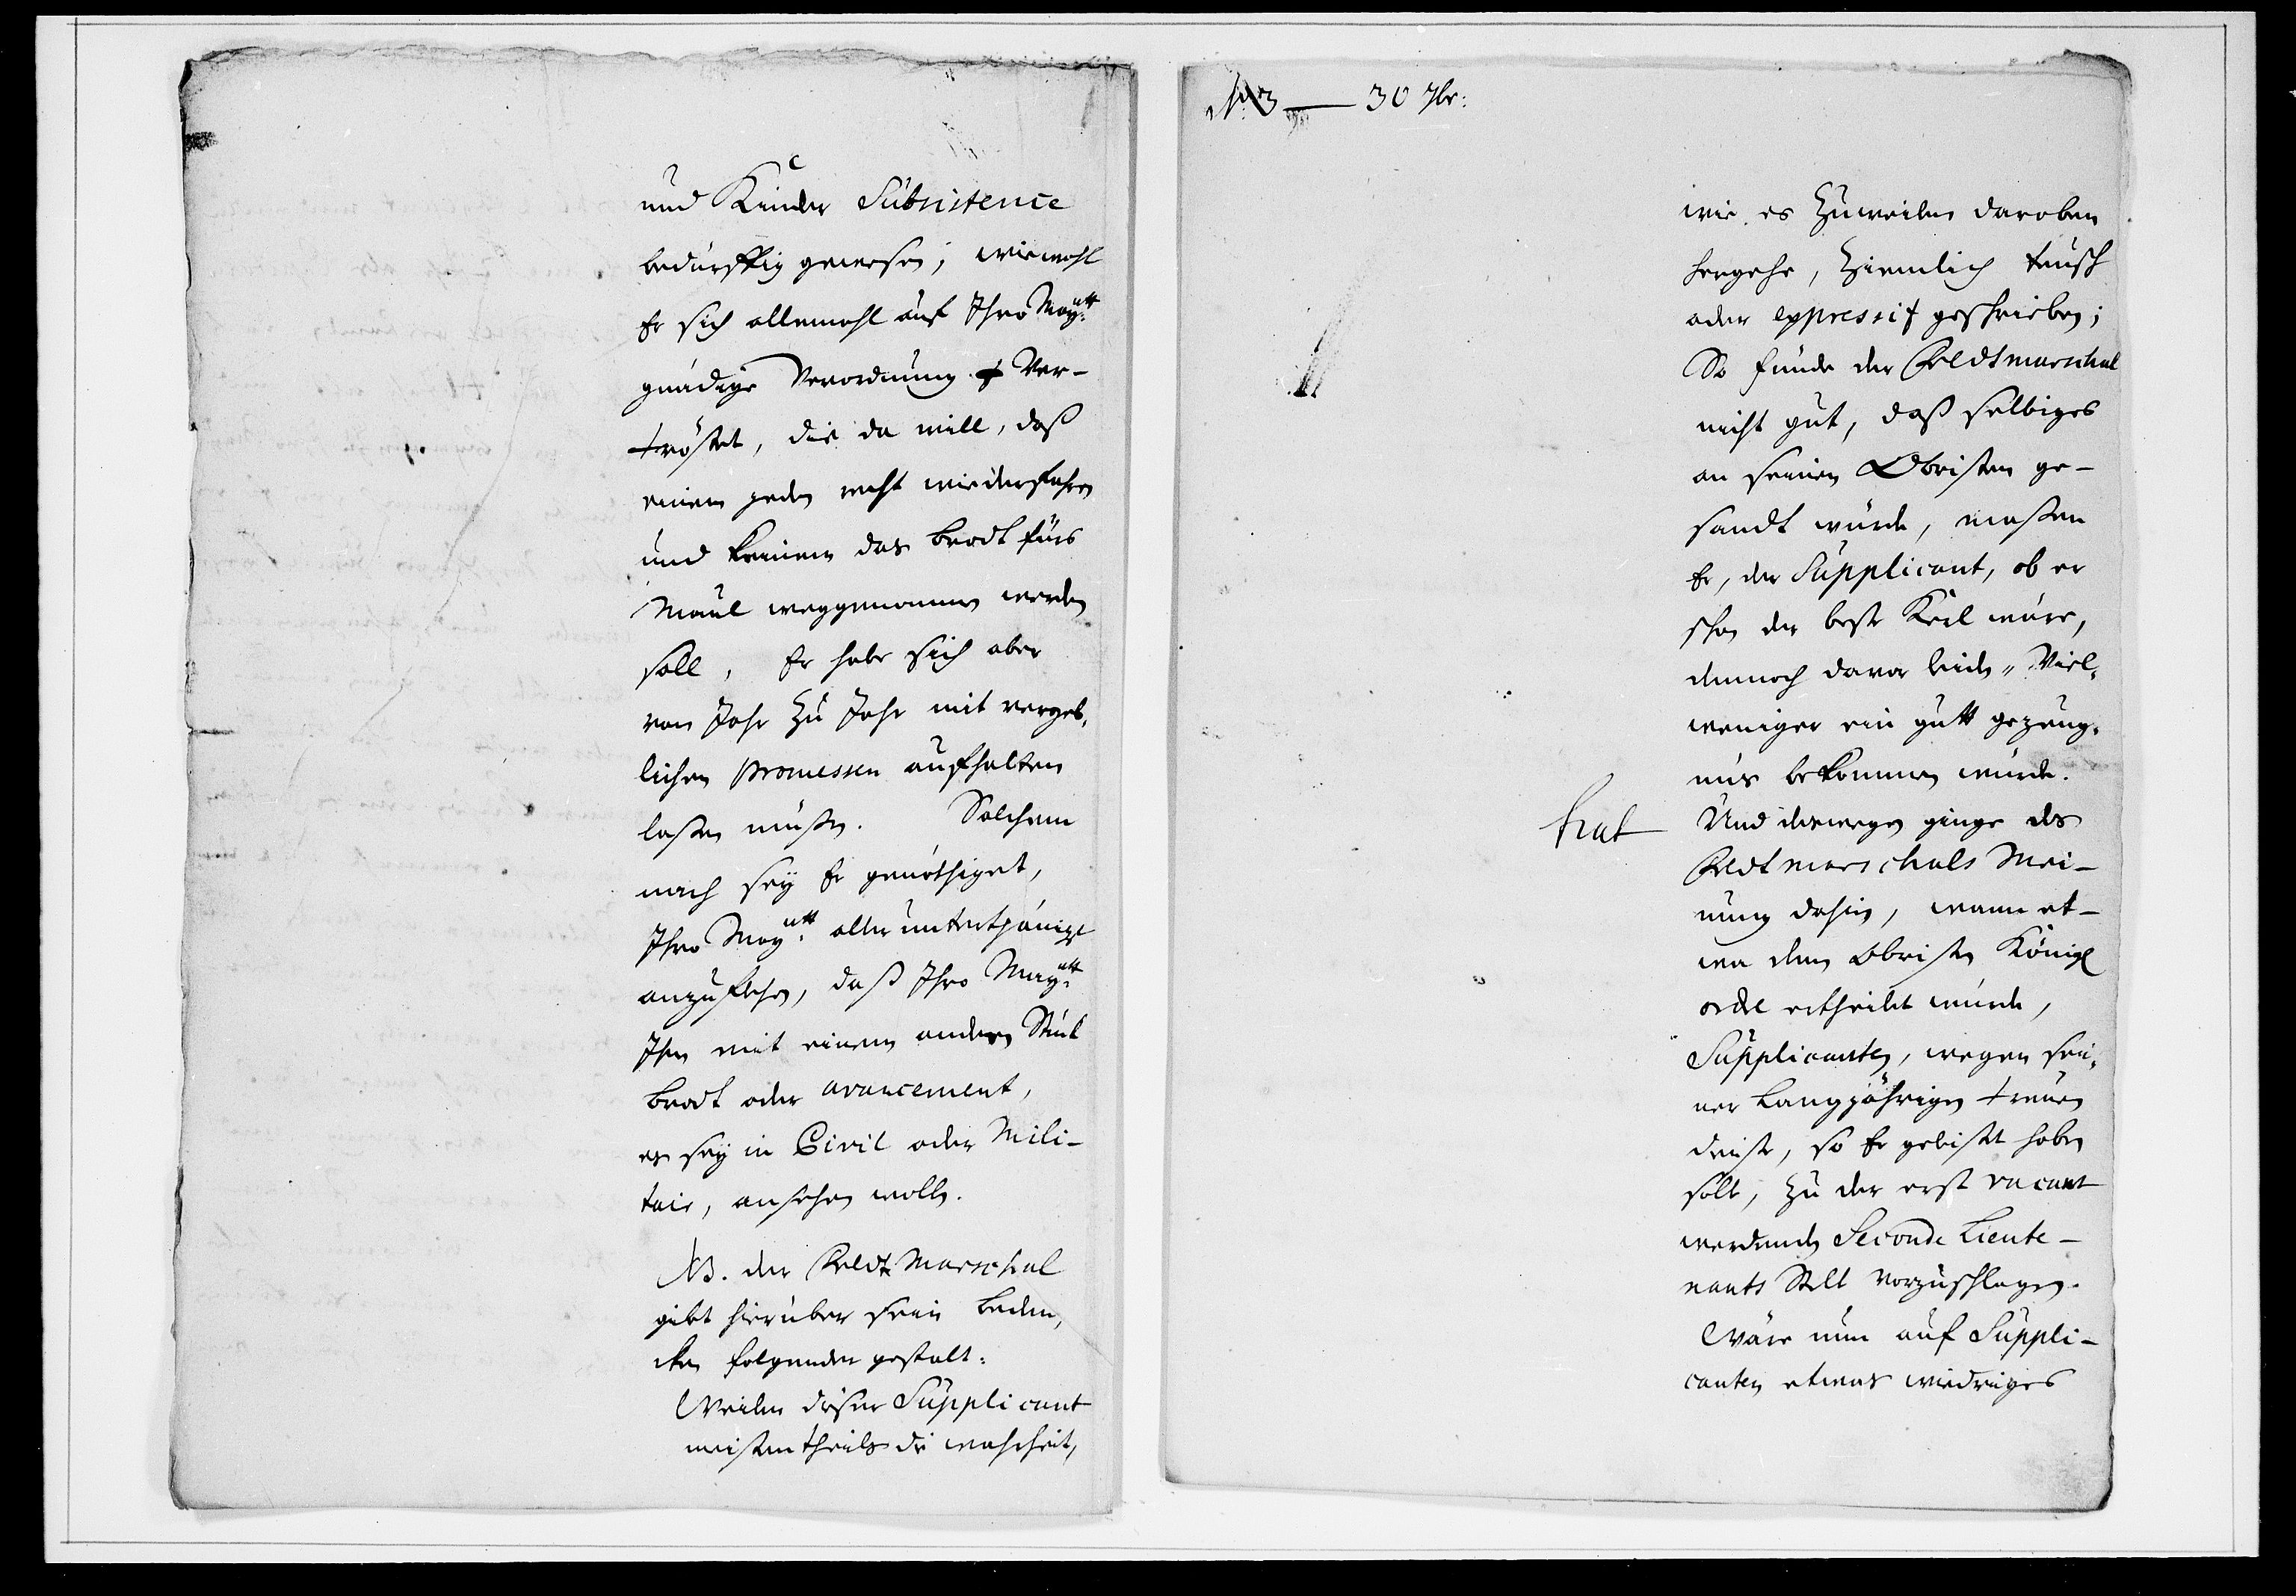 und Kinder Subsistence
bedürfftig gewesen; wiewohl
Er sich allemahl auf Ihro Maytt:
gnädige Verordnung Ver-
tröstet, die da will, daß
einem jeden recht wiederfahren
und keinem das brodt fürs
Maul weggenommen werden
soll, Er habe sich aber
von Jahr zu Jahr mit vergeb,
lichen promessen auffhalten
laßen müßen. Solchem
nach seÿ Er genöthiget,
Ihro Maytt: allerunterthänigst
anzuflehen, daß Ihro Maytt:
Ihn mit einem andern Stück
brodt oder avancement,
es seÿ in Civil oder Mili-
tair, ansehen wolle.
NB. der Feldt Marschal
gibt hierüber sein beden,
cken folgender gestalt:
Weilen dieser Supplicant
meistentheils die wahrheit,
No 3 — 30 7br:
wie es Zuweilen daroben
hergehe, Ziemlich teusch
oder expressif geschrieben;
So finde der Feldtmarschal
nicht gut, daß selbiges
an seinen Obristen ge-
sandt würde, maßen
Er, der Supplicant, ob er
schon der beste Kerl wäre,
dennoch davor leiden, Viel,
weniger ein gutt gezeug,
nüs bekommen würde.
fiat
Und deswegen ginge des
Feldtmarschals Mei-
nung dahin, wann et-
wa dem Obristen Königl
ordre ertheilet würde,
Supplicanten, wegen sei,
ner Langjährigen treuen
dienste, so Er geleistet haben
solle, Zu der erst vacant
werdenden Seconde Lieute-
nants Stelle vorzuschlagen.
Wäre nun auf Suppli-
canten etwas wiedriges